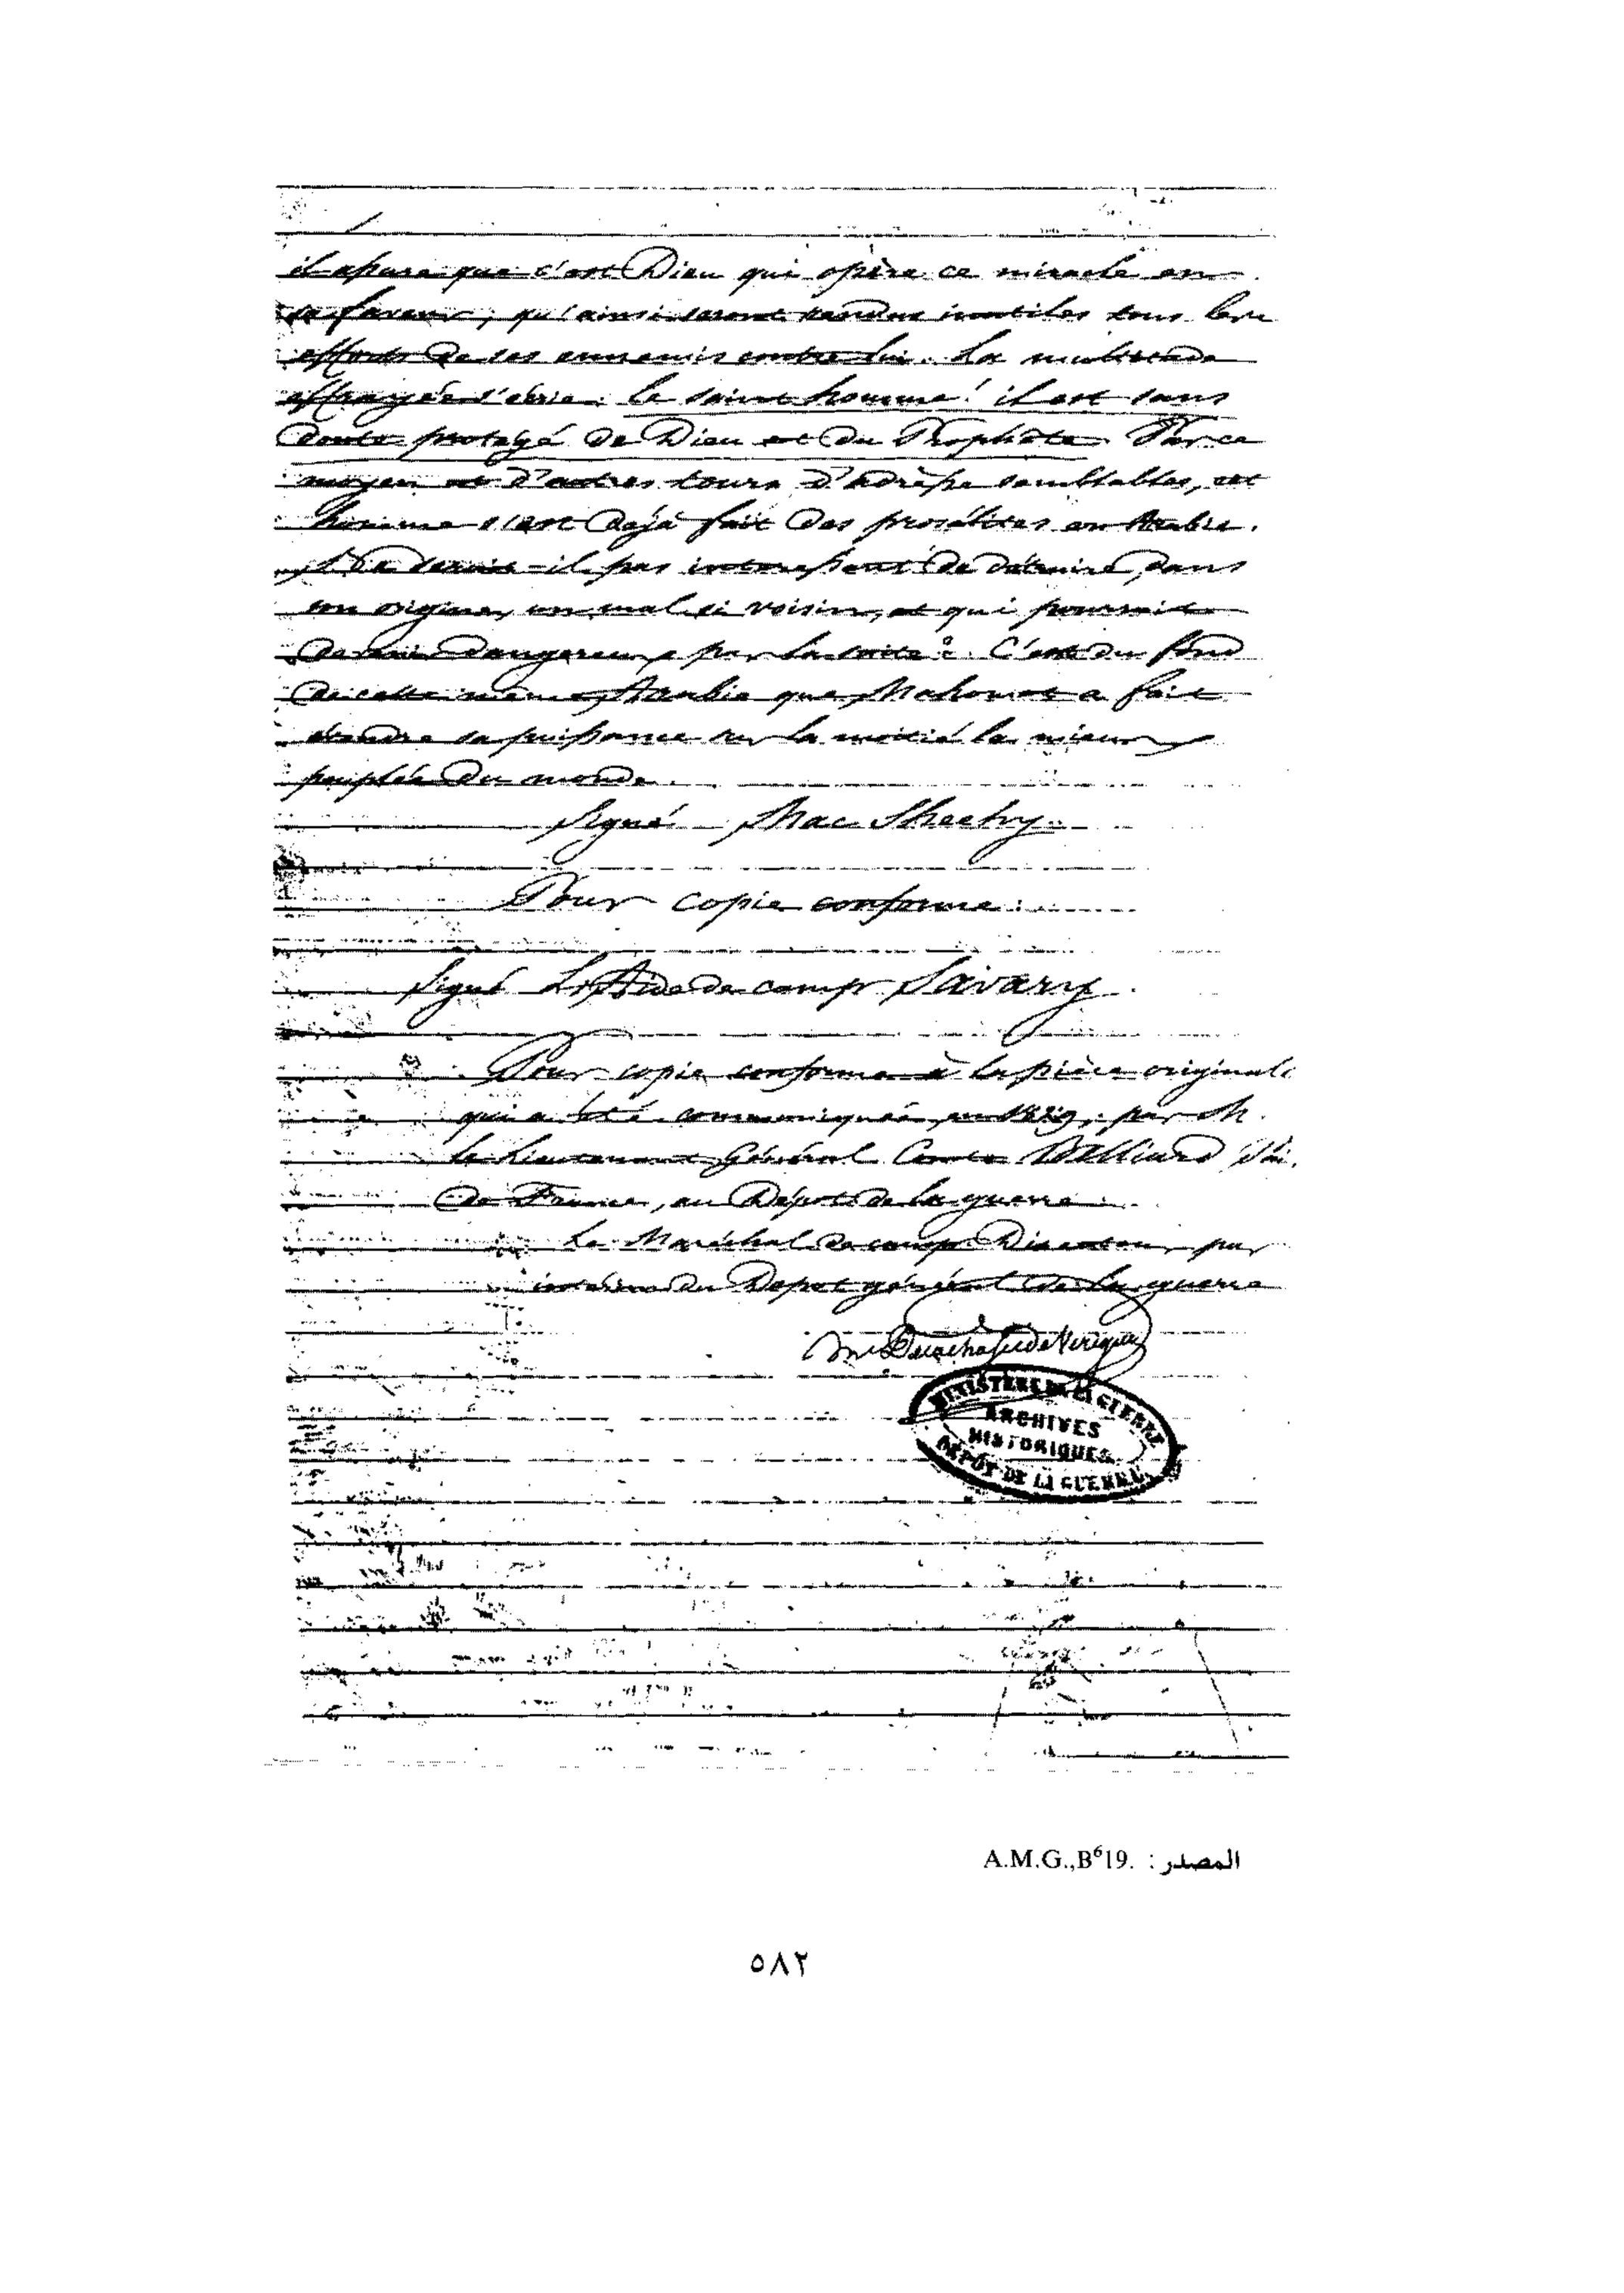 il assure que c'est Dieu qui opère ce miracle en
sa faveur, qu'ainsi seront rendus inutiles tous les
efforts de ses ennemis contre lui. La multitude
effrayée s'écrie: le saint homme! il est sans
doute protégé de Dieu et du Prophète. Par ce
moyen et d'autres tours d'adresse semblables, cet
homme s'est déjà fait des prosélites en Arabie.
Ne serait-il pas intéressant de détruire, dans
son origine, un mal si voisin, et qui pourrait
devenir dangereux par la suite? C'est du fond
de cette même Arabie que Mahomet a fait
étendre sa puissance sur la moitié la mieux
peuplée du monde.
Signé Mac Sheehy.
Pour copie conforme:
Signé L'Aide de camp Savary.
Pour copie conforme à la pièce originale
qui a été communiquée, en 1829, par M.
le Lieutenant Général Comte Belliard
de France, au Dépôt de la guerre.
Le Maréchal de camp Directeur par
intérim du Dépot général de la guerre
MINISTÈRE DE LA GUERRE
ARCHIVES
HISTORIQUES
DÉPÔT DE LA GUERRE
المصدر : A.M.G.,B⁶19.
٥٨٢